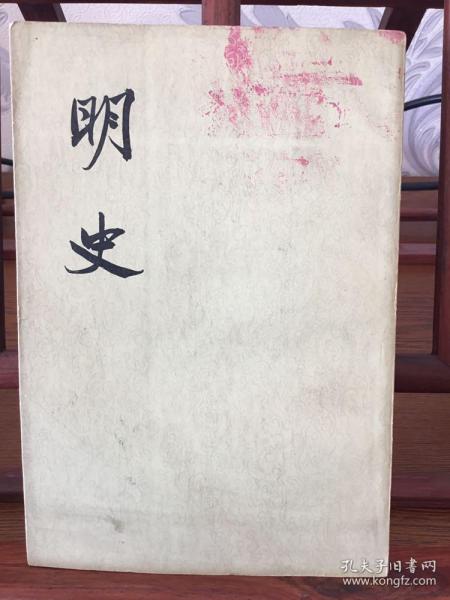 明史
孔夫子旧书网
www.kongfz.com